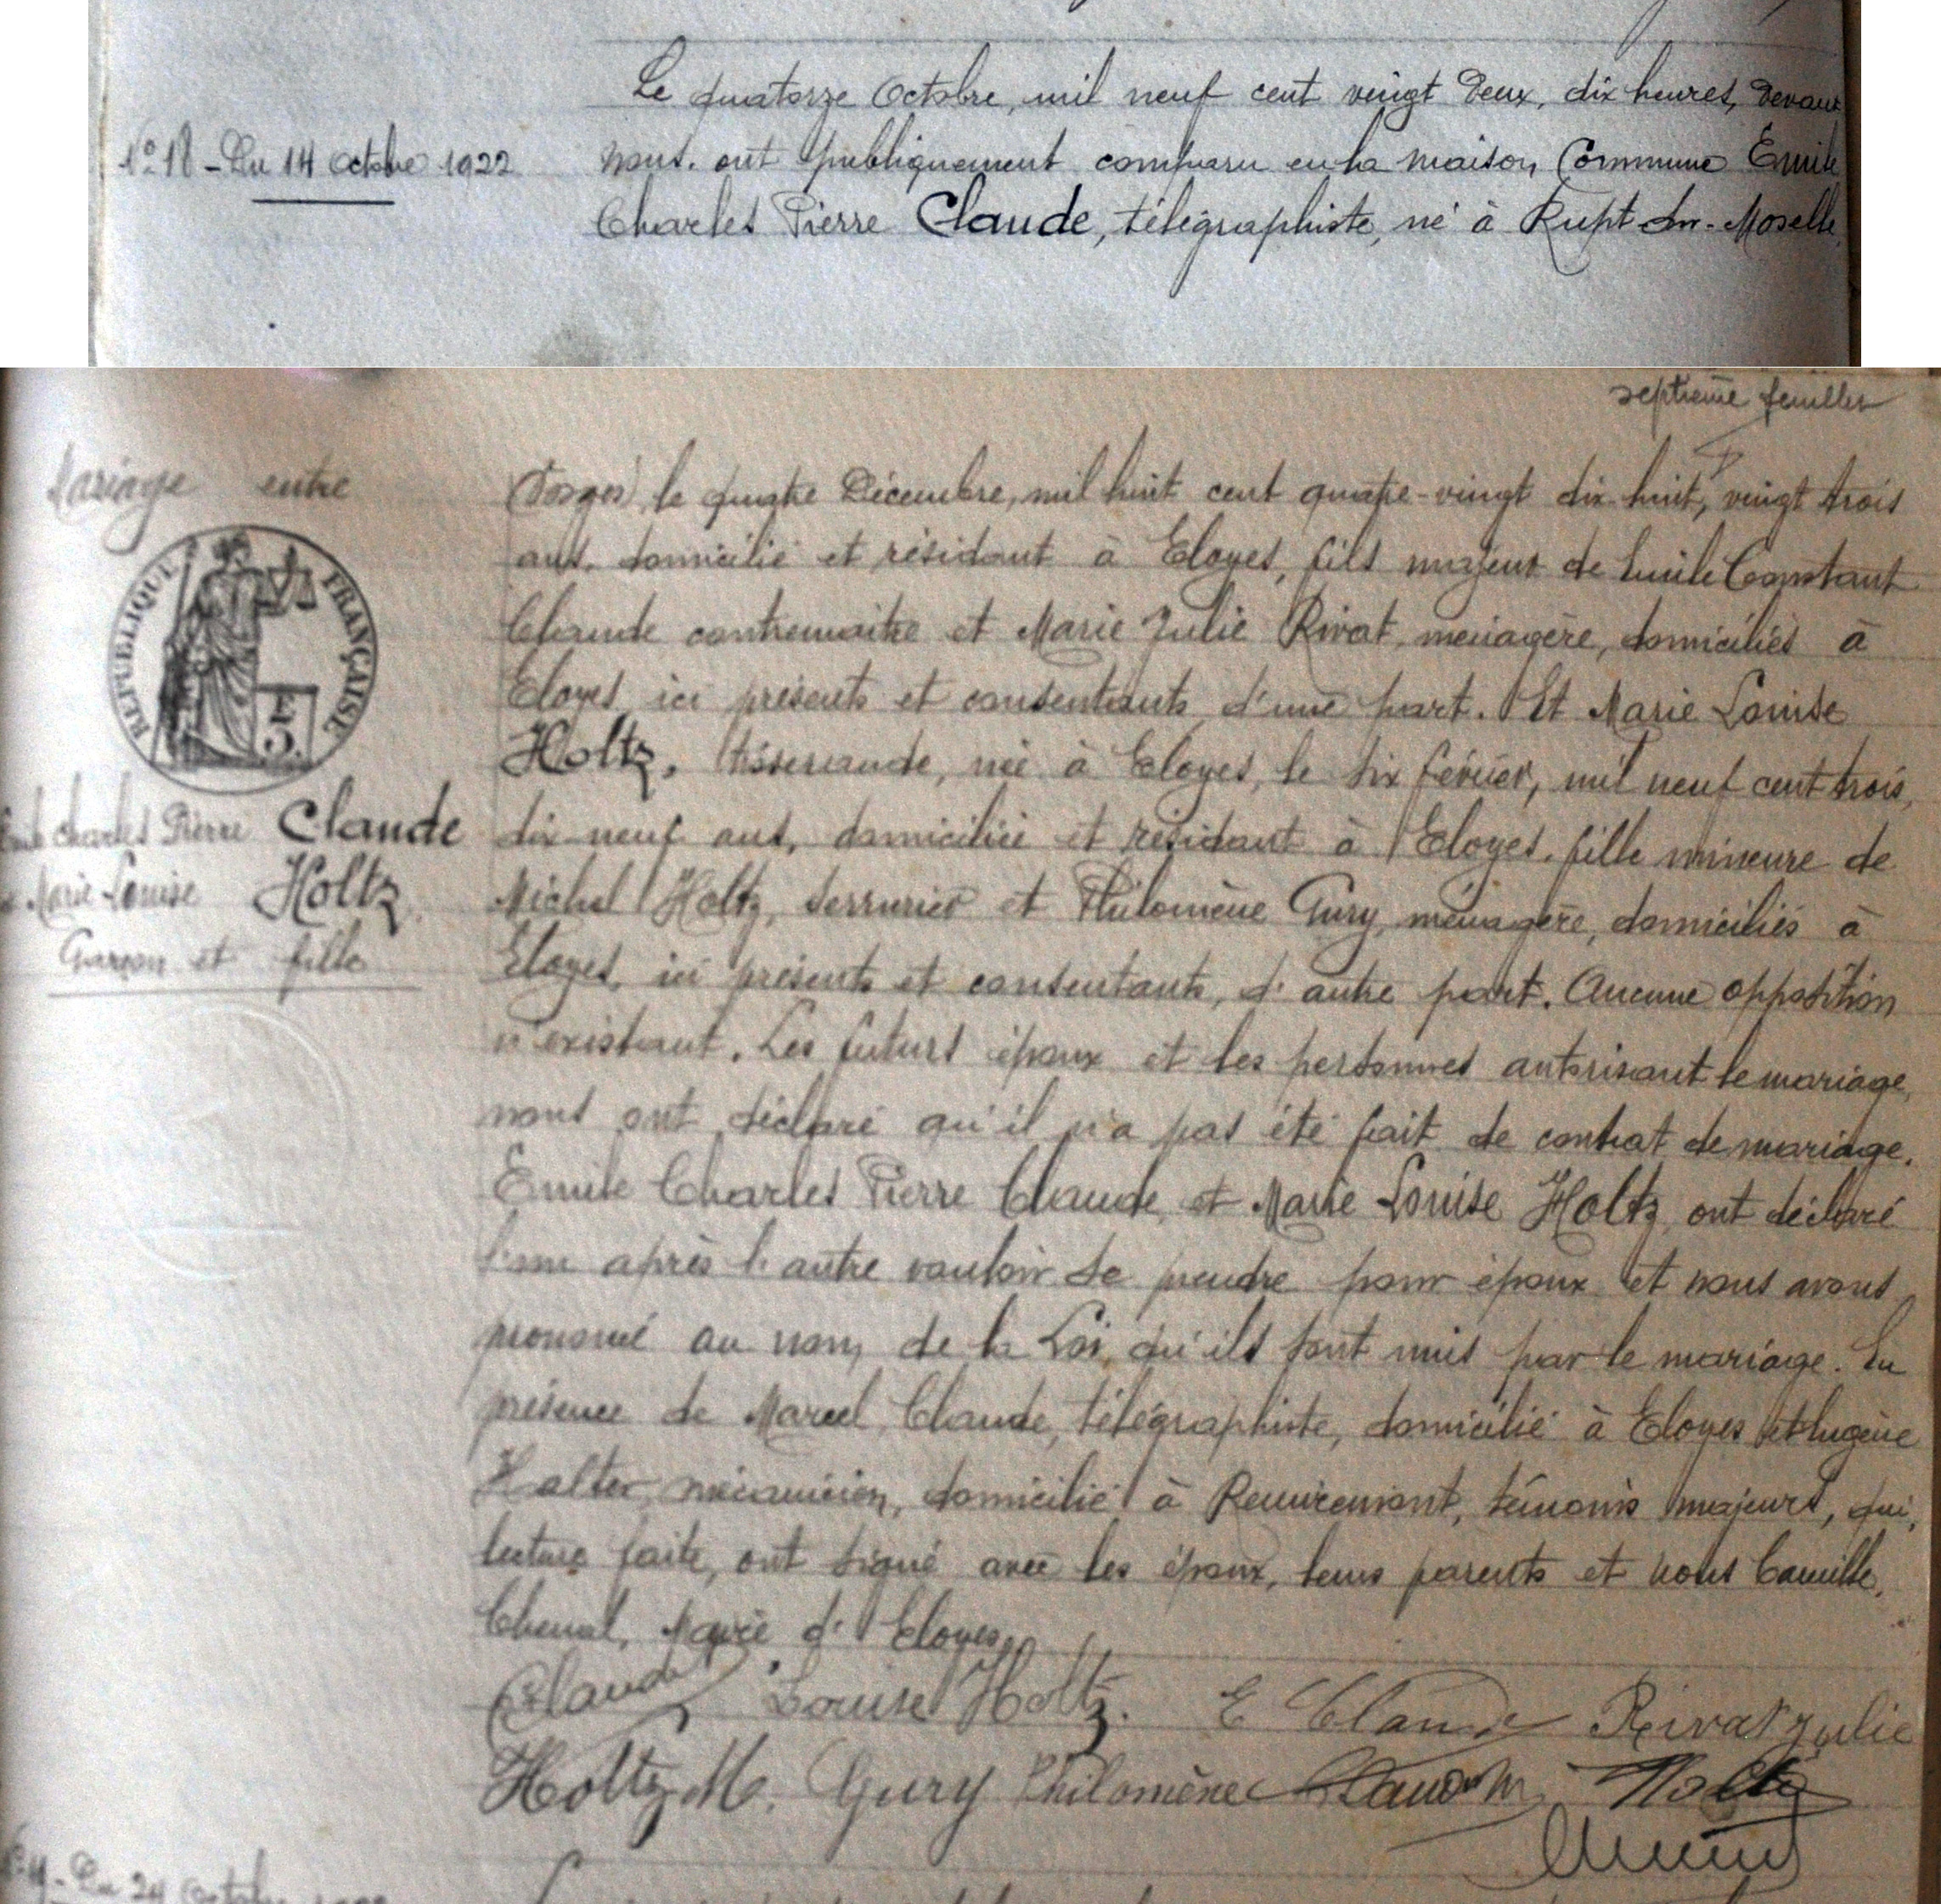 Le quatorze Octobre, mil neuf cent vingt deux, dix heures, devant
N° 18 - Du 14 Octobre 1922
nous. ont publiquement comparu en la maison Commune Emile
Charles Pierre Claude, télégraphiste, né à Rupt-sur-Moselle,
septième feuillet
Mariage entre
(Vosges), le quatre Décembre, mil huit cent quatre-vingt dix huit, vingt trois
ans, domicilié et résidant à Eloyes, fils majeur de Emile Constant
Claude contremaitre et Marie Julie Rivat, menagère, domiciliés à
Eloyes, ici présents et consentants d'une part. Et Marie Louise
Holtz, tisserande, née à Eloyes, le six février, mil neuf cent trois,
dix neuf ans, domiciliée et résidant à Eloyes, fille mineure de
Michel Holtz, serrurier et Philomène Gury, ménagère, domiciliés à
Eloyes, ici présents et consentants, d'autre part. Aucune opposition
n'existant. Les futurs époux et les personnes autorisant le mariage,
nous ont déclaré qu'il n'a pas été fait de contrat de mariage.
Emile Charles Pierre Claude, et Marie Louise Holtz, ont déclaré
l'un après l'autre vouloir se prendre pour époux et nous avons
prononcé au nom de la Loi, qu'ils sont unis par le mariage. En
présence de Marcel Claude, télégraphiste, domicilié à Eloyes et Eugène
Halter, mécanicien, domicilié à Remiremont, témoins majeurs, qui,
lecture faite, ont signé avec les époux, leurs parents et nous Camille
Cheval, Maire d'Eloyes
REPUBLIQUE FRANÇAISE
Emile Charles Pierre Claude
et Marie Louise Holtz.
Garçon et fille
Claude Louise Holtz. E Claude Rivat Julie
Holtz M. Gury Philomène Claude M
Du 24 Octobre 1922